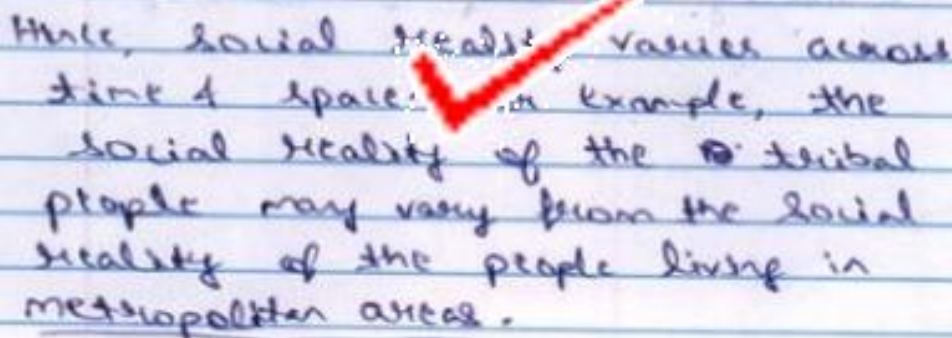 Hence, social reality varies across
time & space. For example, the
social reality of the tribal
people may vary from the social
reality of the people living in
metropolitan areas.